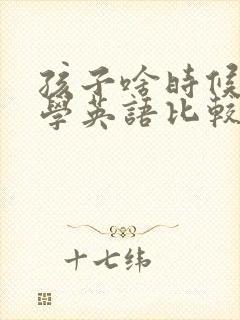 孩子啥時候
學英語比較
十七纬